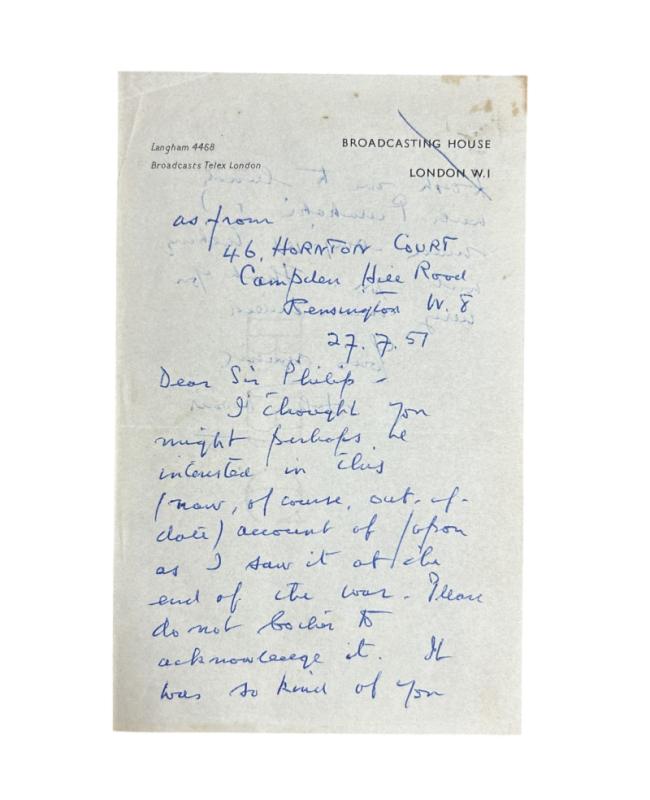 Langham 4468
Broadcasts Telex London
BROADCASTING HOUSE
LONDON W.1
as from
46, HORNTON COURT
Campden Hill Road
Kensington W. 8
27. 7. 51
Dear Sir Philip -
I thought you
might perhaps be
interested in this
(now, of course, out-of-
date) account of Japan
as I saw it at the
end of the war. Please
do not bother to
acknowledge it. It
was so kind of you